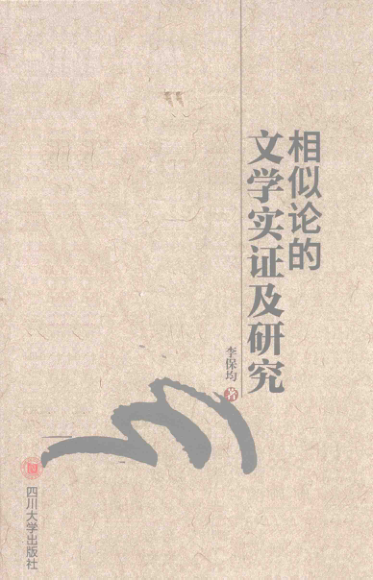 相似论的
文学实证及研究
李保均 著
四川大学出版社